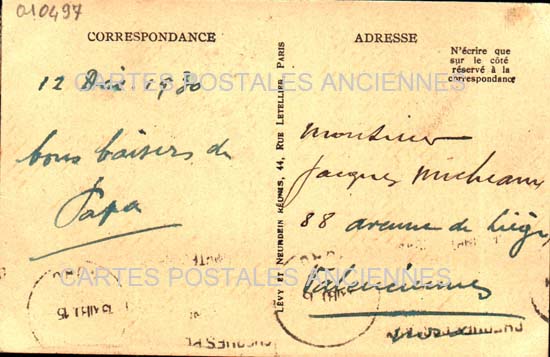 010497
CORRESPONDANCE
ADRESSE
N'écrire que
sur le côté
réservé à la
correspondance
12 Déc. 1930
CARTES POSTALES ANCIENNES
bons baisers de
Papa
LÉVY ET NEURDEIN RÉUNIS, 44, RUE LETELLIER, PARIS
Monsieur
Jacques Micheaux
88 avenue de Liège
Valenciennes
CARTES POSTALES ANCIENNES